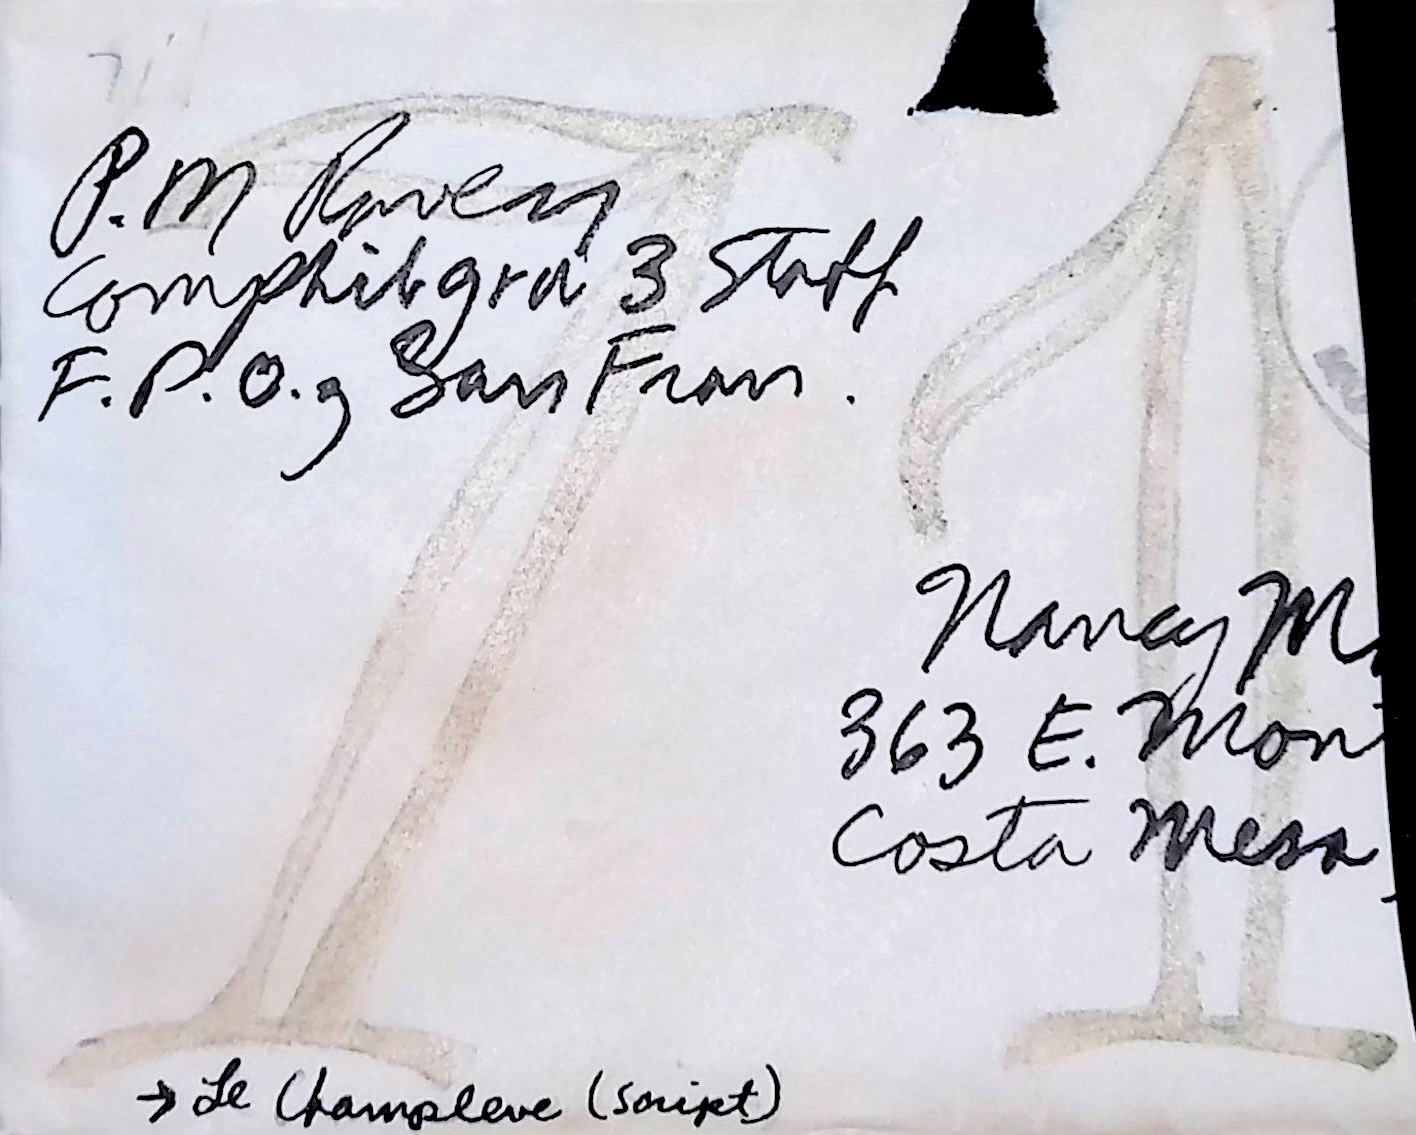 71
P.M Raven
Comphibgru 3 Staff
F.P.O., San Fran.
Nancy M
363 E. Mon
Costa Mesa,
→ Le Champleve (script)